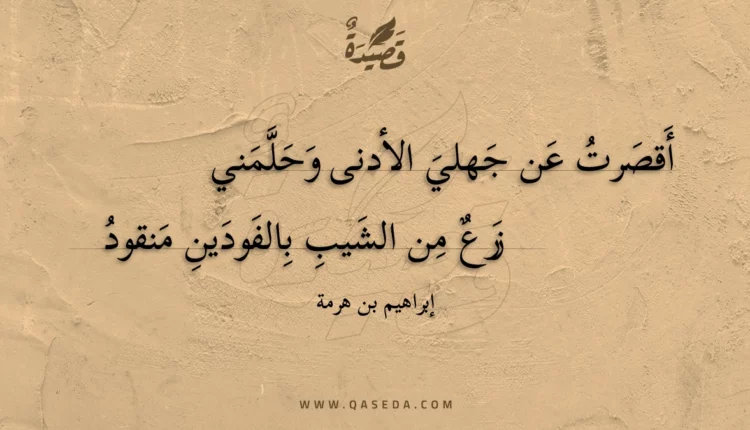 قصيدة
أَقصَرتُ عَن جَهليَ الأدنى وَحَلَّمَني
زَرعٌ مِن الشَيبِ بِالفَودَينِ مَنقودُ
إبراهيم بن هرمة
WWW.QASEDA.COM